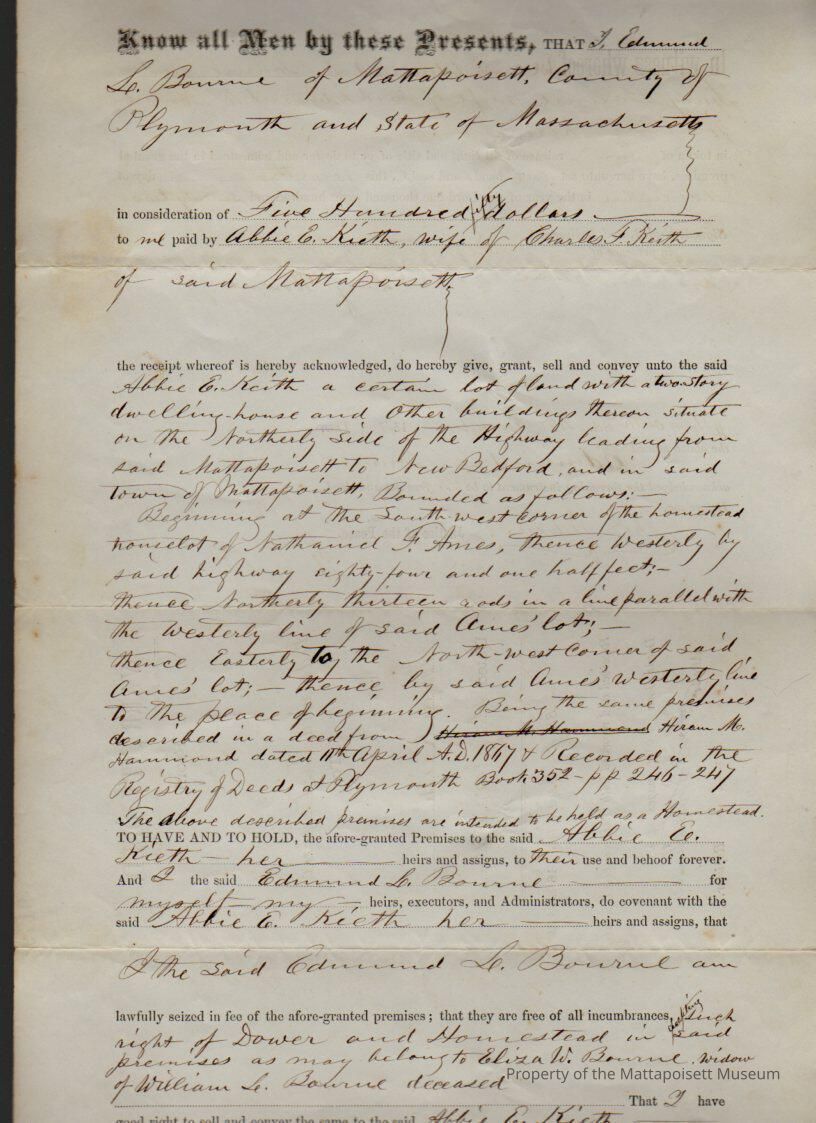 Know all Men by these Presents, THAT I, Edmund
L. Bourne of Mattapoisett, County of
Plymouth and State of Massachusetts
in consideration of Five Hundred fifty dollars
to me paid by Abbie E. Kieth, wife of Charles F. Keith
of said Mattapoisett,
the receipt whereof is hereby acknowledged, do hereby give, grant, sell and convey unto the said
Abbie E. Keith a certain lot of land with a two story
dwelling-house and other buildings thereon situate
on the Northerly side of the Highway leading from
said Mattapoisett to New Bedford, and in said
town of Mattapoisett, Bounded as follows:—
Beginning at the South-west corner of the homestead
houselot of Nathaniel F. Ames, thence Westerly by
said highway eighty-four and one half feet;—
thence Northerly thirteen rods in a line parallel with
the Westerly line of said Ames' lot;—
thence Easterly to the North-west corner of said
Ames' lot;— thence by said Ames' Westerly line
to the place of beginning. Being the same premises
described in a deed from Hiram M. Hammond Hiram M.
Hammond dated 11th April A.D. 1867 & Recorded in the
Registry of Deeds at Plymouth Book 352 - pp 246-247
The above described premises are intended to be held as a Homestead.
TO HAVE AND TO HOLD, the afore-granted Premises to the said Abbie E.
Kieth her heirs and assigns, to their use and behoof forever.
And I the said Edmund L. Bourne for
myself my heirs, executors, and Administrators, do covenant with the
said Abbie E. Kieth her heirs and assigns, that
I the said Edmund L. Bourne am
lawfully seized in fee of the afore-granted premises; that they are free of all incumbrances, excepting such
right of Dower and Homestead in said
premises as may belong to Eliza W. Bourne widow
of William L. Bourne deceased
Property of the Mattapoisett Museum
That I have
good right to sell and convey the same to the said Abbie E. Kieth